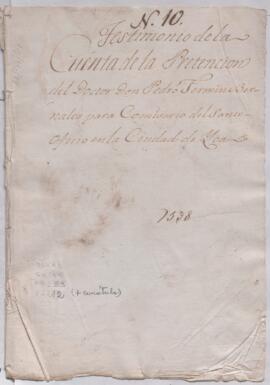 N. 10.
Testimonio de la
Cuenta de la Pretencion
del Doctor Don Pedro Fermin
para Comisario del Santo
oficio en la Ciudad de
1538
12 (+ carátula)